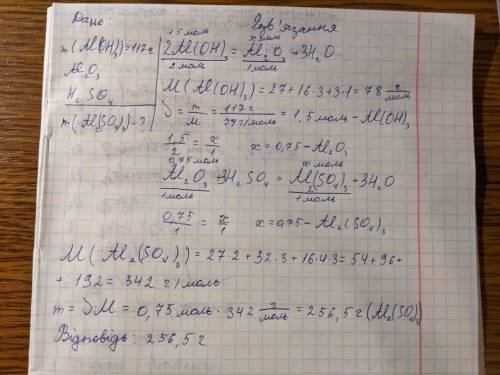 Дано
Розв'язання
m(Al(OH)₃)=117г
Al₂O₃
H₂SO₄
m(Al₂(SO₄)₃)-?
1,5 моль x моль
2Al(OH)₃ = Al₂O₃ + 3H₂O
2 моль 1 моль
M(Al(OH)₃) = 27+16·3+3·1 = 78 г/моль
ν = m/M = 117г/78г/моль = 1,5 моль - Al(OH)₃
1,5/2 = x/1 x = 0,75 - Al₂O₃
0,75 моль x моль
Al₂O₃ + 3H₂SO₄ = Al₂(SO₄)₃ + 3H₂O
1 моль 1 моль
0,75/1 = x/1 x = 0,75 - Al₂(SO₄)₃
M(Al₂(SO₄)₃) = 27·2 + 32·3 + 16·4·3 = 54 + 96 +
+ 192 = 342 г/моль
m = νM = 0,75 моль · 342 г/моль = 256,5 г (Al₂(SO₄)₃)
Відповідь: 256,5 г